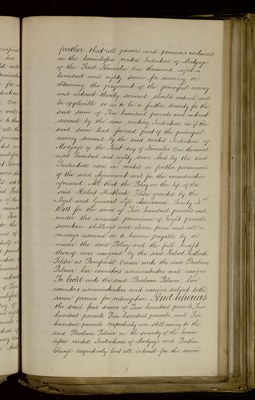 further that all powers and provisions contained
in the hereinbefore recited Indenture of Mortgage
of the First November One thousand eight
hundred and eighty seven for securing or
obtaining the payment of the principal money
and interest thereby secured should extend and
be applicable so as to be a further security for the
said sum of Five hundred pounds and interest
secured by the now reciting Indenture as if the
said sum had formed part of the principal
money secured by the said recited Indenture of
Mortgage of the First day of November One thousand
eight hundred and eighty seven And by the said
Indenture now in recital in further pursuance
of the said Agreement and for the consideration
aforesaid All that the Policy on the life of the
said Robert Holthank granted by the
Legal and General Life Assurance Society No
for the sum of Five hundred pounds and
under the annual premium of eight pounds
seventeen shillings and eleven pence and all
moneys assured or to become payable by or
under the said Policy and the full benefit
thereof was assigned by the said Robert
as Beneficial Owner unto the said Barbara
Palmer her executors administrators and assigns
To hold unto the said Barbara Palmer her
executors administrators and assigns subject to the
same proviso for redemption And whereas
the said four sums of Five hundred pounds, Five
hundred pounds, Five hundred pounds and Five
hundred pounds respectively are still owing to the
said Barbara Palmer on the security of the herein
before recited Indentures of Mortgage and Further
Charge respectively but all interest for the same